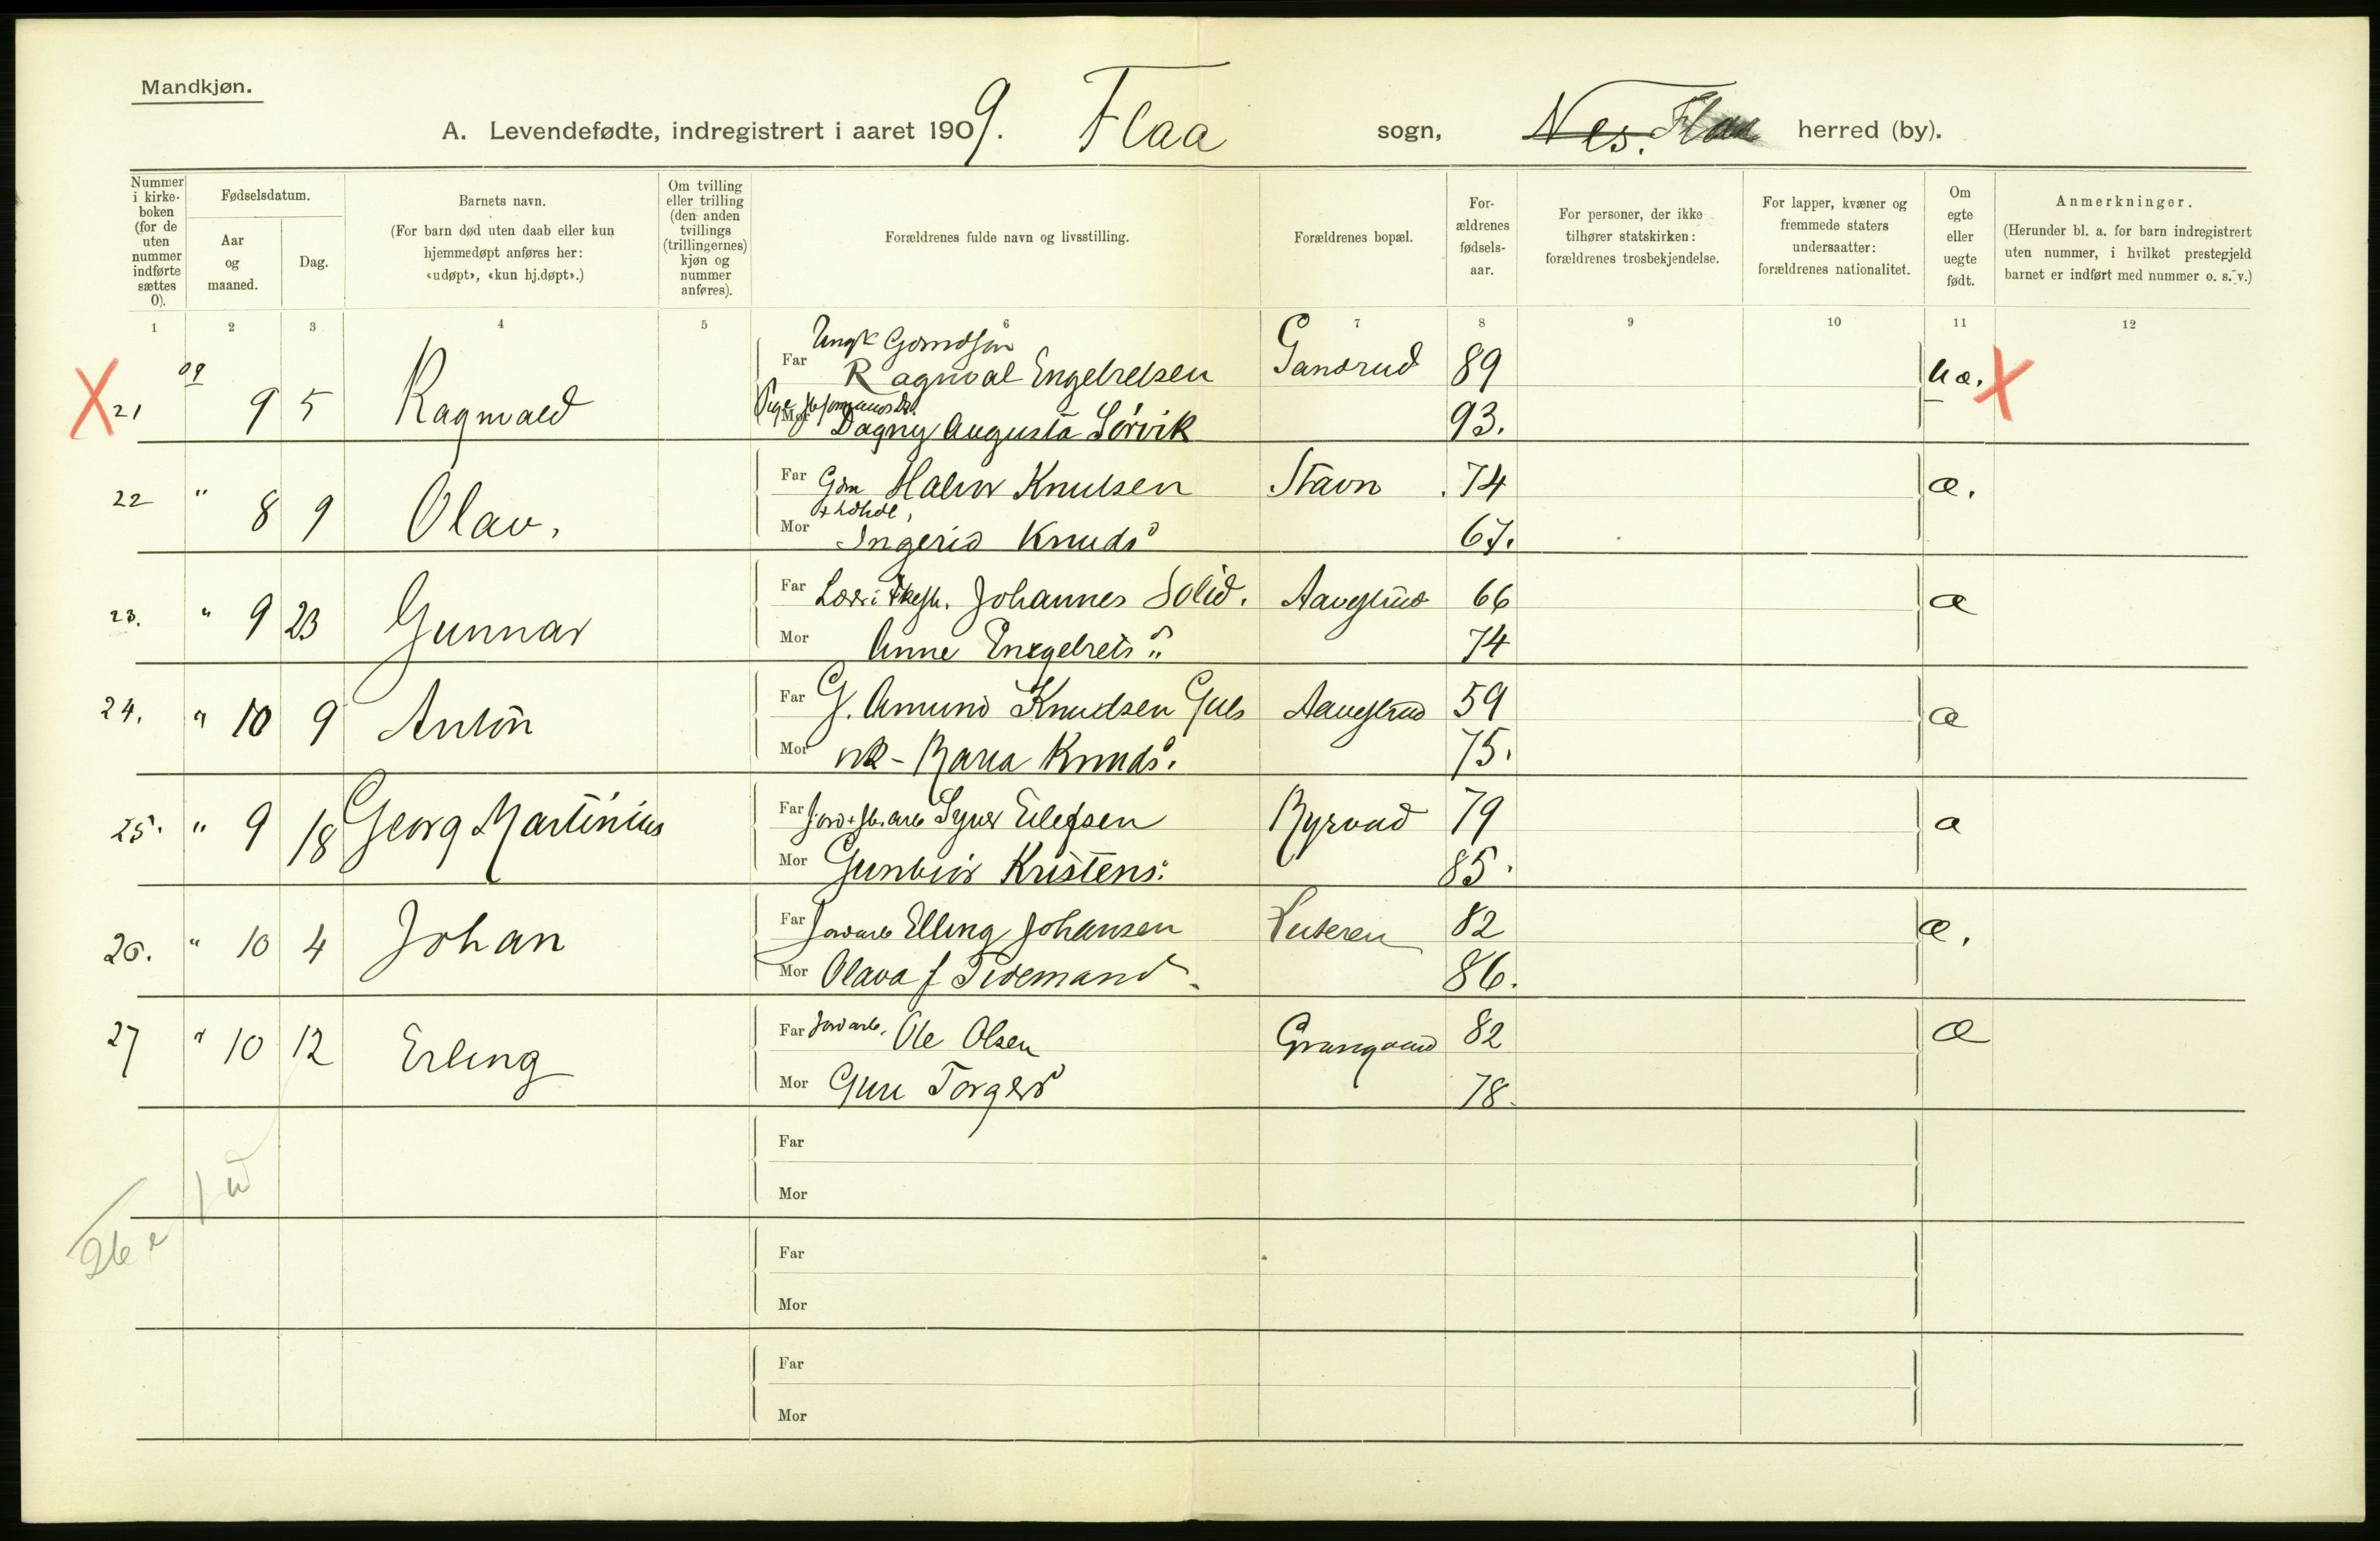 Mandkjøn.
A. Levendefødte, indregistrert i aaret 1909. Flaa sogn, Nes. Flaa herred (by).
Nummer i kirkeboken (for de uten nummer indførte sættes 0).
Fødselsdatum.
Aar og maaned.
Dag.
Barnets navn.
(For barn død uten daab eller kun hjemmedøpt anføres her: «udøpt», «kun hj.døpt».)
Om tvilling eller trilling (den anden tvillings (trillingernes) kjøn og nummer anføres).
Forældrenes fulde navn og livsstilling.
Forældrenes bopæl.
Forældrenes fødselsaar.
For personer, der ikke tilhører statskirken: forældrenes trosbekjendelse.
For lapper, kvæner og fremmede staters undersaatter: forældrenes nationalitet.
Om egte eller uegte født.
Anmerkninger.
(Herunder bl. a. for barn indregistrert uten nummer, i hvilket prestegjeld barnet er indført med nummer o. s. v.)
1 2 3 4 5 6 7 8 9 10 11 12
Ungk Gaardsøn
X 21 09 9 5 Ragnvald Far Ragnval Engebretsen Gandrud 89 uæ. X
Pige
Mor Dagny Augusta Sørvik 93.
22 " 8 9 Olav. Far Gdm Halvor Knutsen Stavn 74 æ.
Mor Ingerid Knudsd 67.
23. " 9 23 Gunnar Far Johannes Solid. Aavestrud 66 æ
Mor Anne Engebrets" 74
24. " 10 9 Anton Far G. Amund Knudsen Guls Aavestrud 59 æ
Mor vik - Maria Knudsd. 75.
25. " 9 18 Georg Martinius Far Syver Eilefsen 79 æ
Mor Gunbiør Kristens: 85.
26. " 10 4 Johan Far Jordarb Elling Johansen 82 æ.
Mor Olava f Tidemand. 86.
27 " 10 12 Erling Far Jordarb. Ole Olsen 82 æ
Mor Guri Torgersd 78.
Far
Mor
26 e 1 u
Far
Mor
Far
Mor